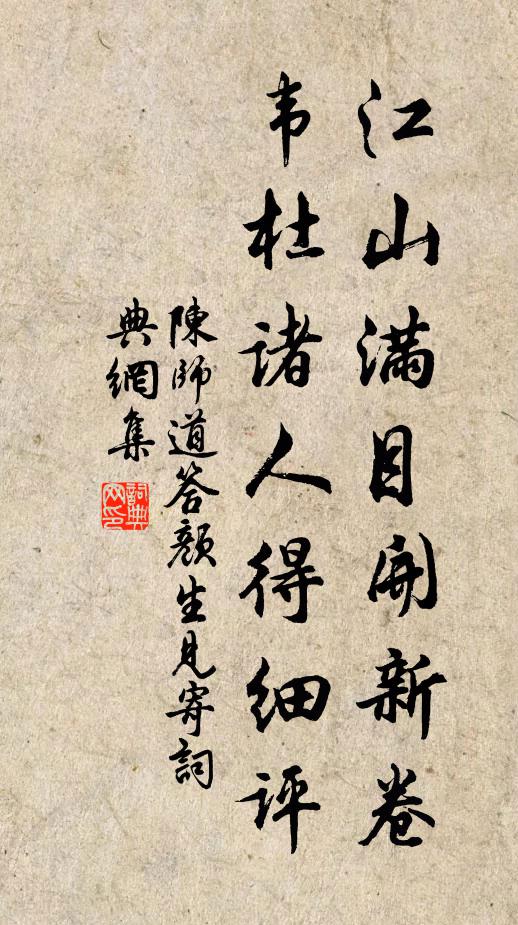 江山满目开新卷
韦杜诸人得细评
陳師道答顏生見寄詞
典網集
詞典
网印